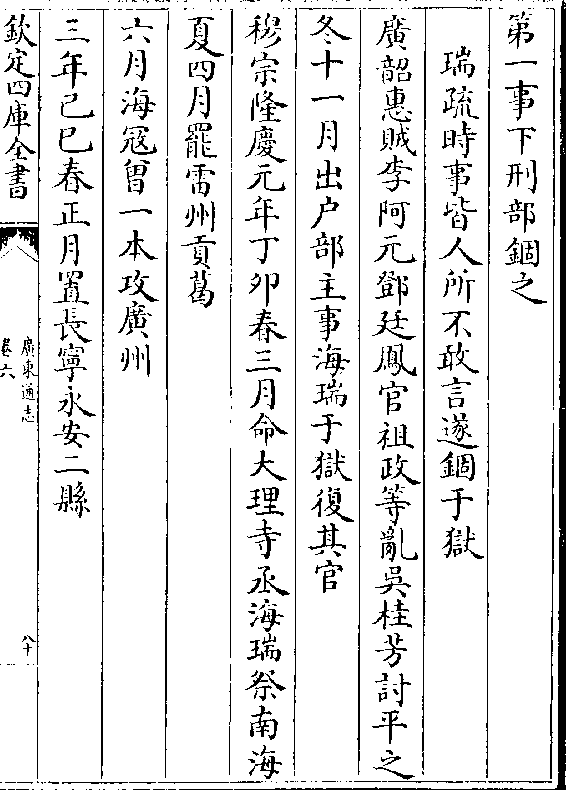 第一事下刑部錮之
瑞疏時事皆人所不敢言遂錮于獄
廣韶惠賊李阿元鄧廷鳳官祖政等亂吳桂芳討平之
冬十一月出户部主事海瑞于獄復其官
穆宗隆慶元年丁卯春三月命大理寺丞海瑞祭南海
夏四月罷雷州貢葛
六月海冦曾一本攻廣州
三年己巳春正月置長寧永安二縣
欽定四庫全書
廣東通志
卷六
八十